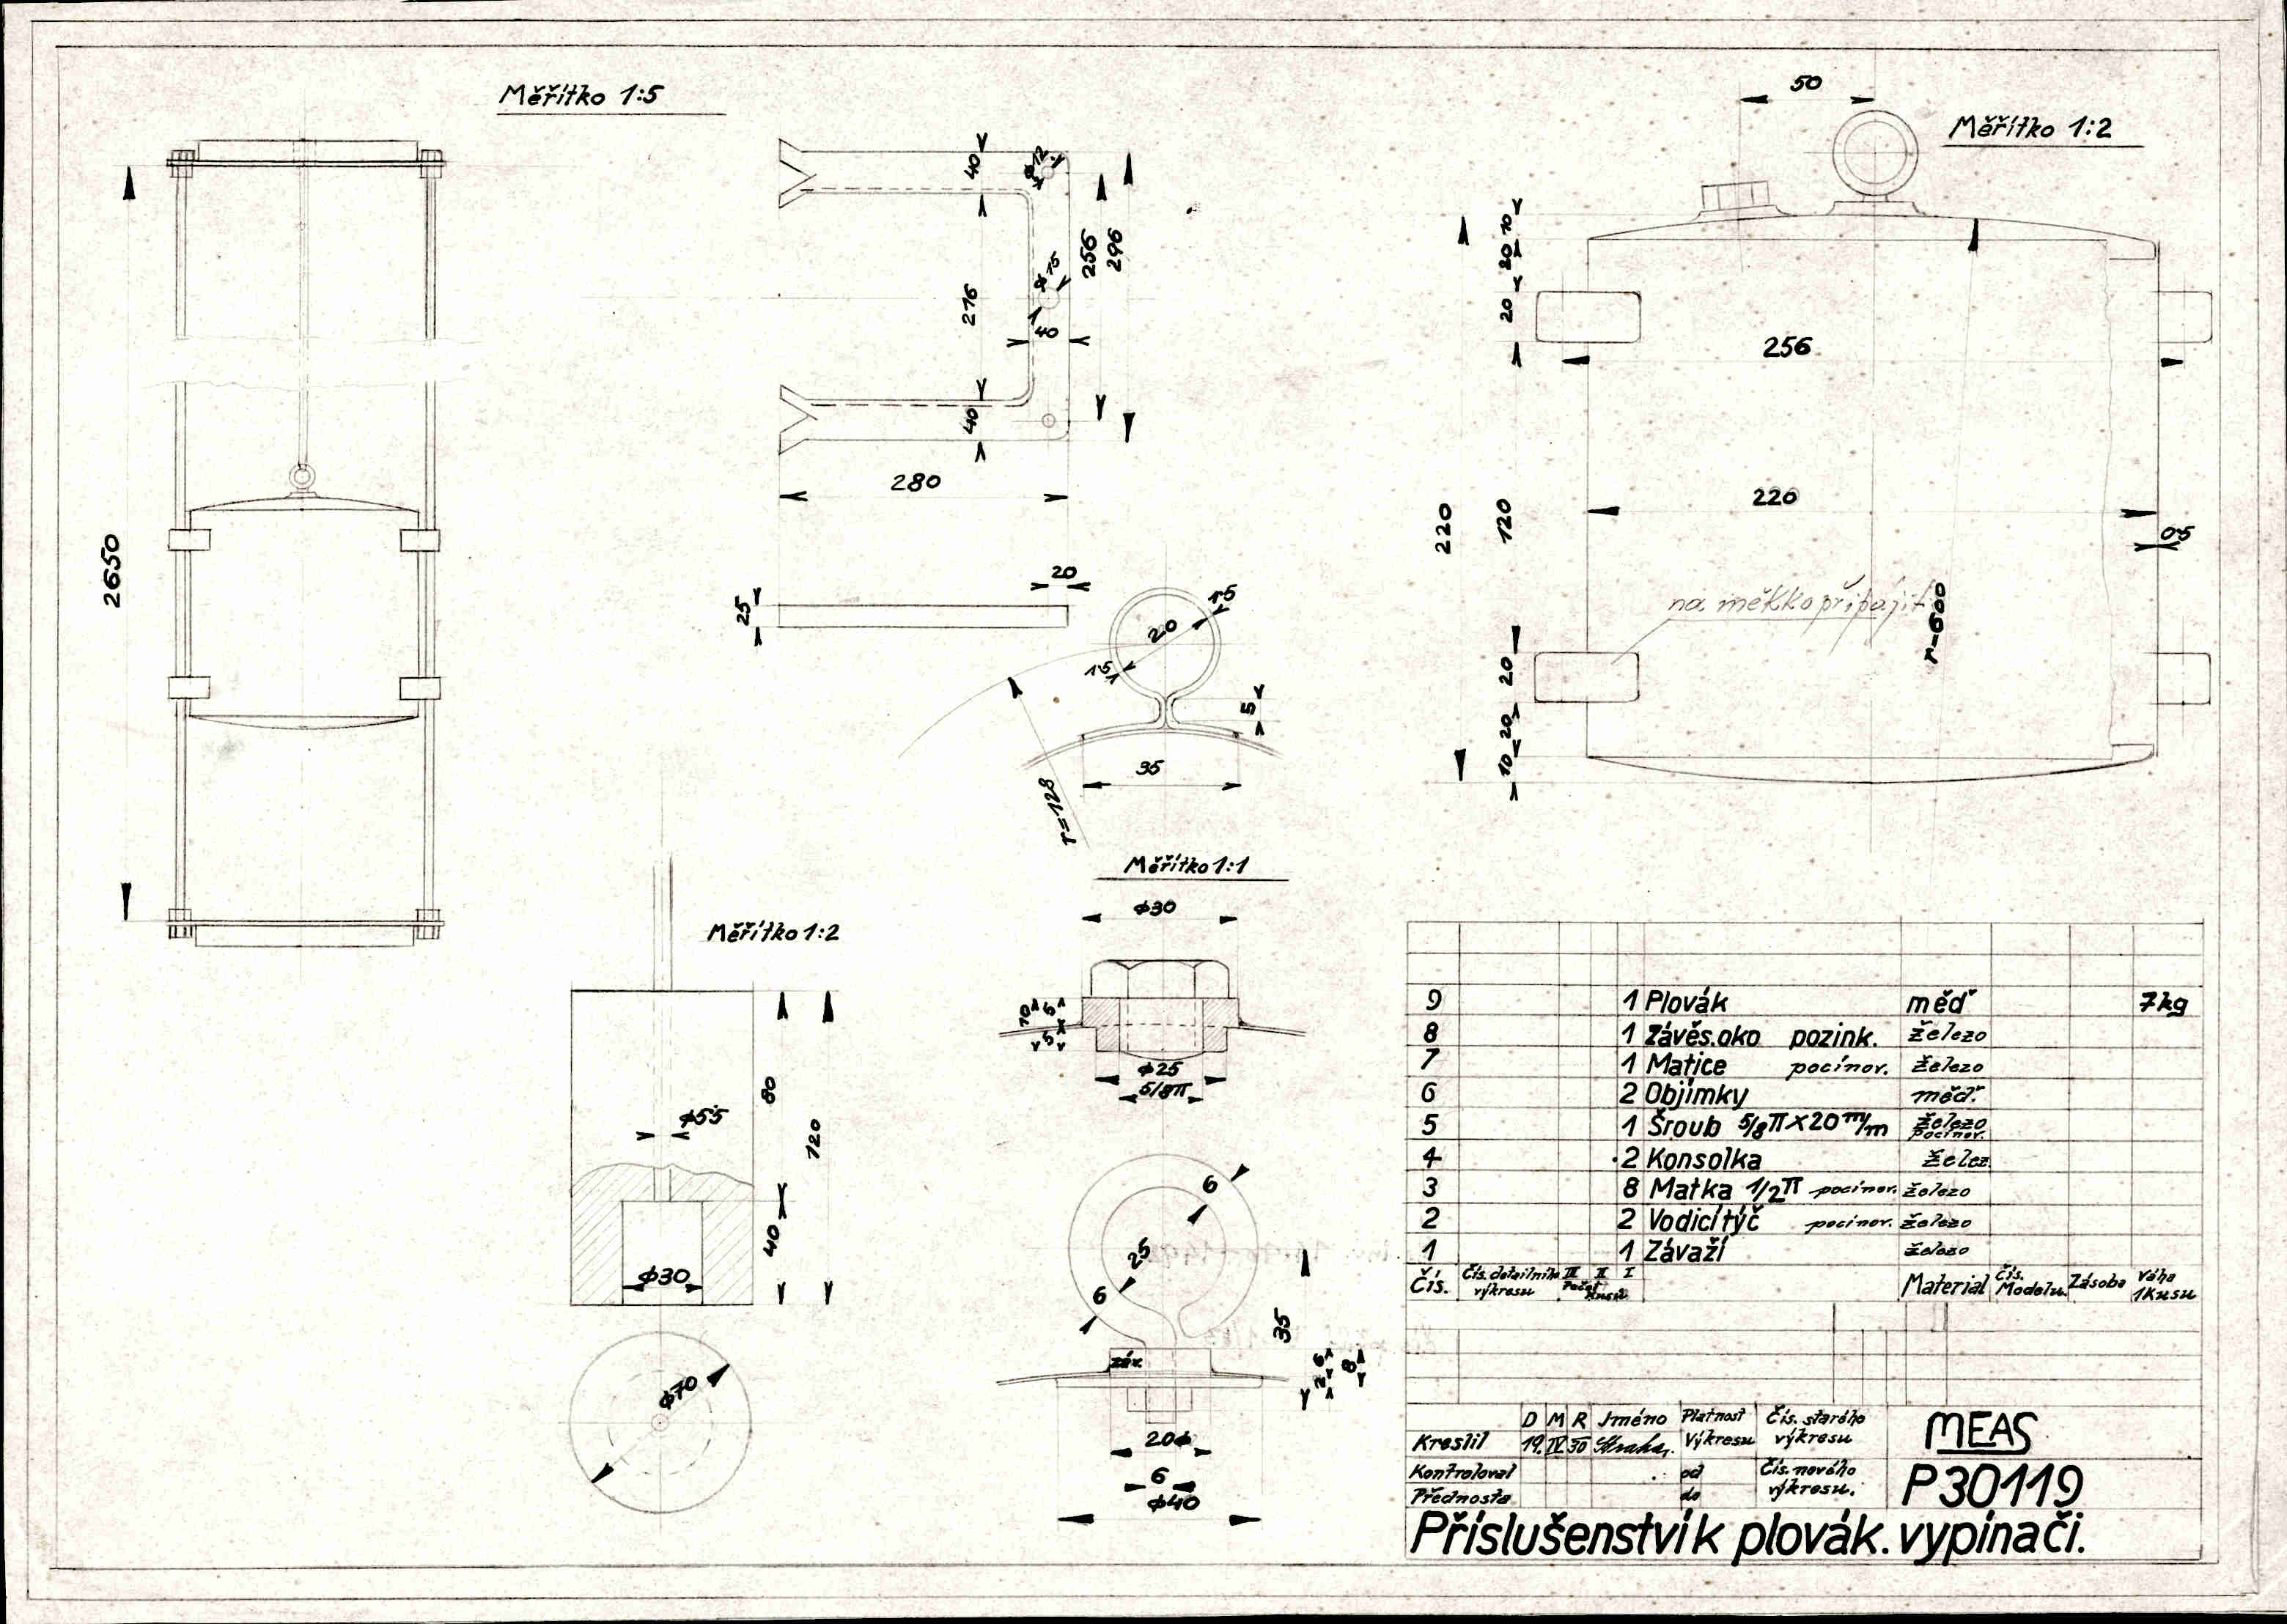 Měřítko 1:5
2650
40
ϕ12
256
296
216
ϕ15
40
40
280
20
25
50
Měřítko 1:2
10
20
20
256
220
120
220
05
na měkko připájit
r=600
20
20
10
15
20
15
5
35
r=128
Měřítko 1:1
ϕ30
10
5
5
ϕ25
5/8π
Měřítko 1:2
80
120
ϕ55
40
ϕ30
ϕ70
6
25
6
35
záv.
6
2
8
20ϕ
6
ϕ40
9 1 Plovák měď 7kg
8 1 Závěs.oko pozink. železo
7 1 Matice pocínov. železo
6 2 Objímky měď.
5 1 Šroub 5/8π×20 m/m železo pocínov.
4 2 Konsolka želez.
3 8 Matka 1/2π pocínov. železo
2 2 Vodicí týč pocínov. železo
1 1 Závaží železo
Čís. Čís. detailního výkresu III II I Počet kusů Material Čís. Modelu. Zásoba Váha 1Kusu
D M R Jméno Platnost Výkresu Čís. starého výkresu MEAS
Kreslil 19. IV 30
Kontroloval od Čís. nového výkresu. P30119
Přednosta do
Příslušenství k plovák. vypínači.